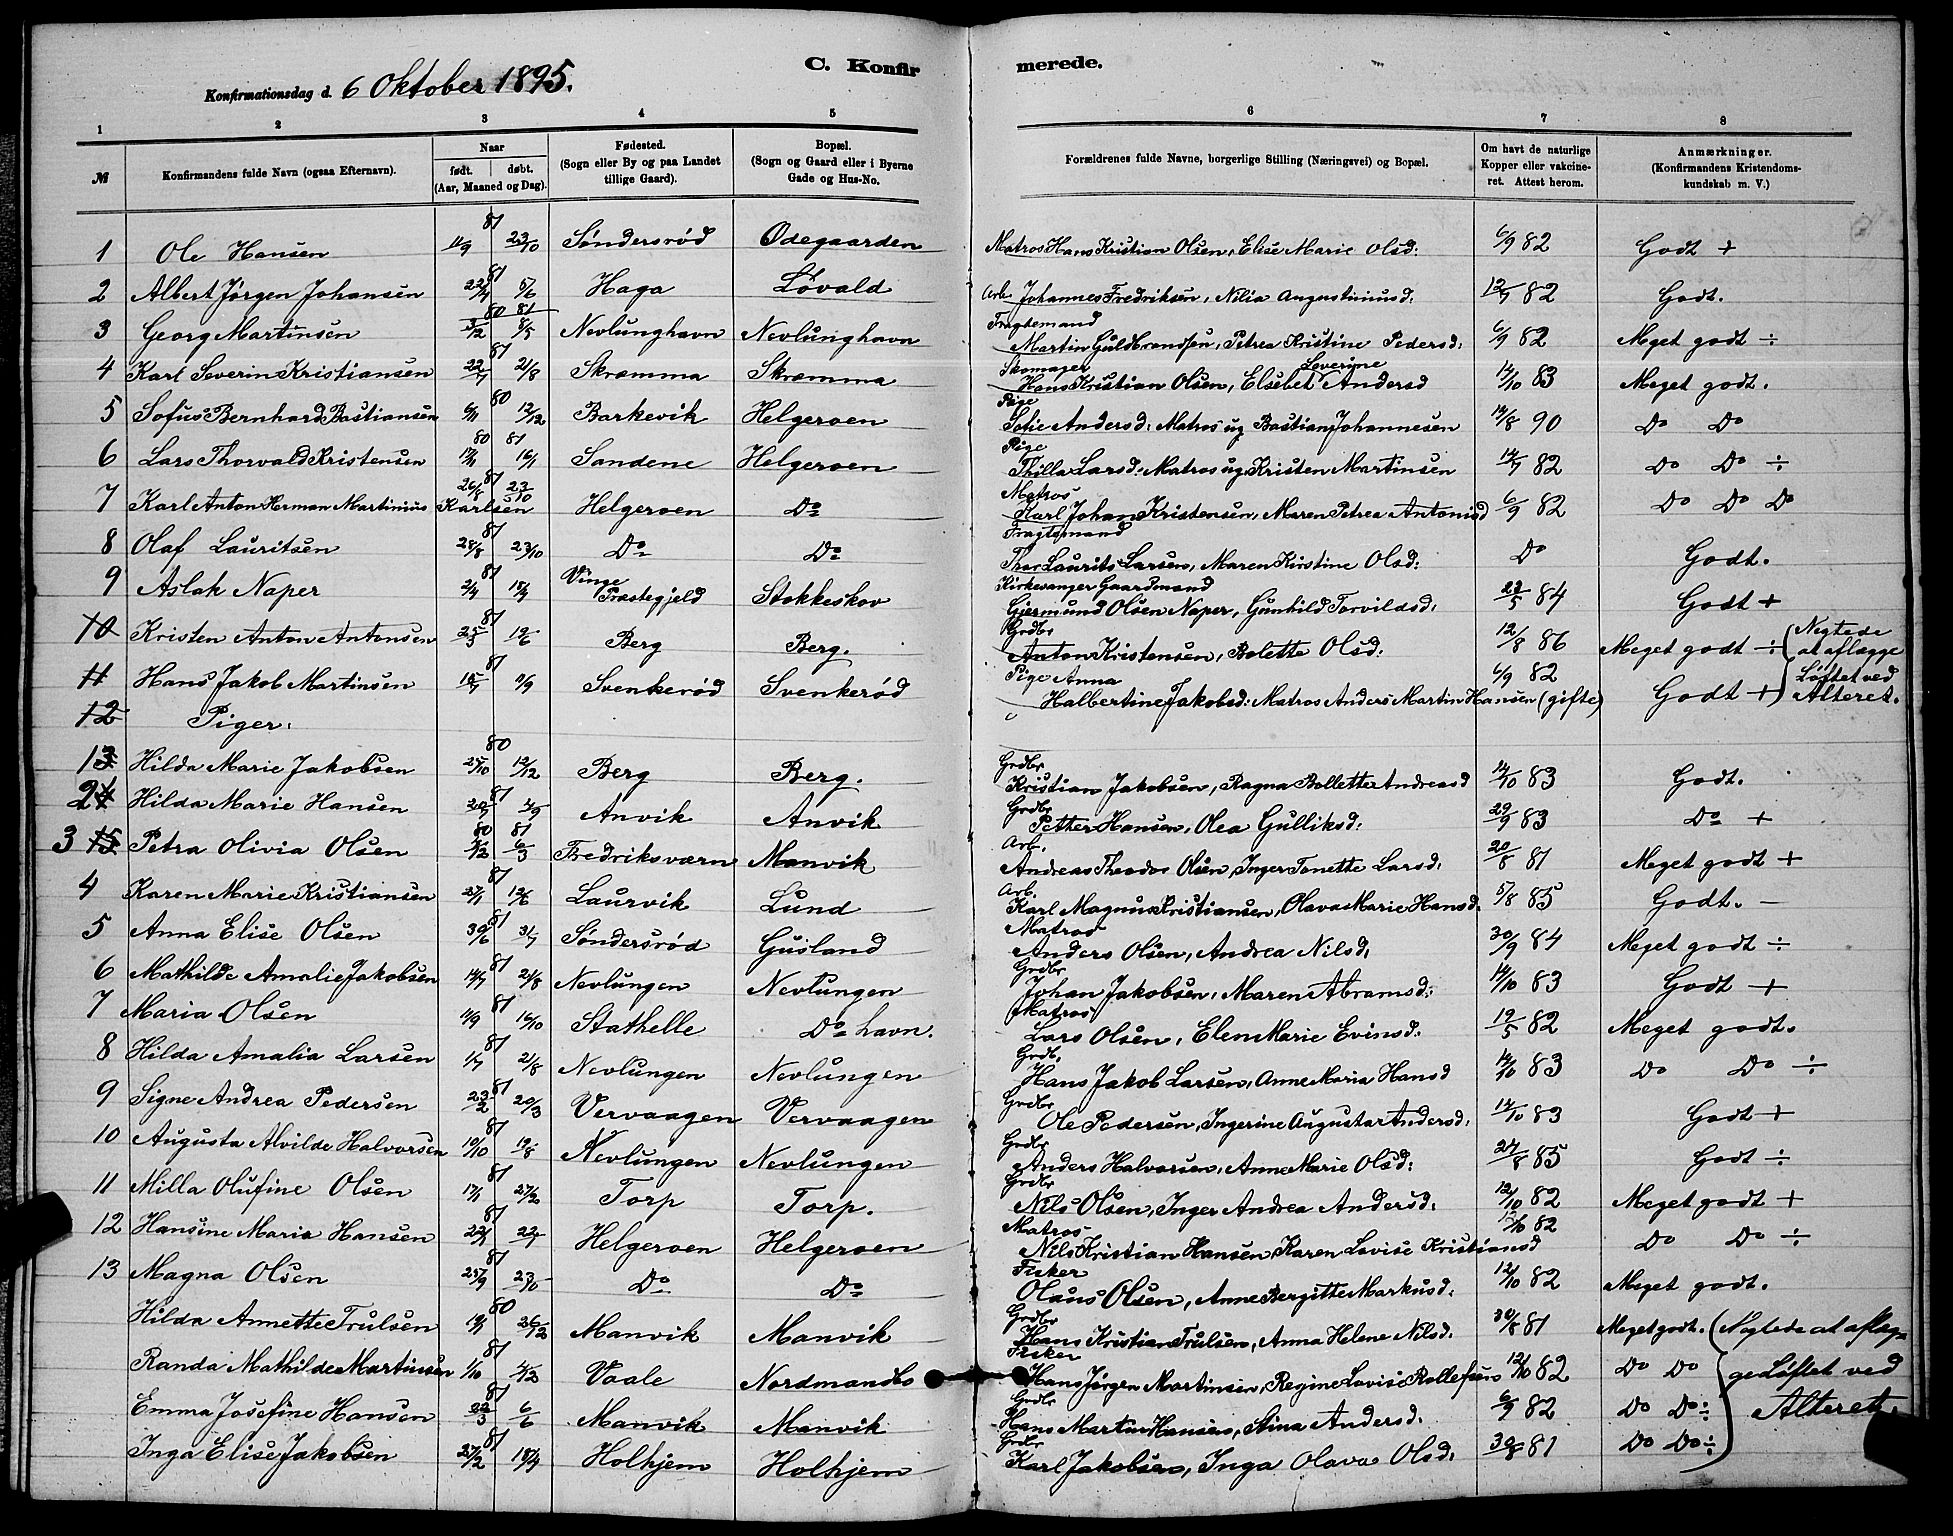 C. Konfirmerede.
Konfirmationsdag d. 6 Oktober 1895.
1 2 3 4 5 6 7 8
№ Konfirmandens fulde Navn (ogsaa Efternavn). Naar født. døbt. (Aar, Maaned og Dag). Fødested. (Sogn eller By og paa Landet tillige Gaard). Bopæl. (Sogn og Gaard eller i Byerne Gade og Hus-No. Forældrenes fulde Navne, borgerlige Stilling (Næringsvei) og Bopæl. Om havt de naturlige Kopper eller vakcineret. Attest herom. Anmærkninger. (Konfirmandens Kristendomskundskab m. V.)
1 Ole Hansen 11/9 81 23/10 Søndersrød Ødegaarden Matros Hans Kristian Olsen, Elise Marie Olsd: 6/9 82 Godt +
2 Albert Jørgen Johansen 22/4 81 5/6 Haga Løvald Arb. Johannes Fredriksen, Nilia Augustiniusd: 12/7 82 Godt.
3 Georg Martinsen 3/12 80 81 8/5 Nevlunghavn Nevlunghavn Fragtemand Martin Guldbrandsen, Petrea Kristine Pedersd: 6/9 82 Meget godt ÷
4 Karl Severin Kristiansen 22/7 81 21/8 Skramma Skramma Skomager Hans Kristian Olsen, Elsebet Leverine Andersd 14/10 83 Meget godt.
5 Sofus Bernhard Bastiansen 6/11 80 12/12 Barkevik Helgeroen Pige Sofie Andersd: Matros ug Bastian Johannesen 14/8 90 Do Do
6 Lars Thorvald Kristensen 17/11 80 81 16/1 Sandene Helgeroen Pige Thilla Larsd: Matros ug. Kristen Martinsen 14/7 82 Do Do ÷
7 Karl Anton Herman Martinius Karlsen 26/8 81 23/10 Helgeroen Do Matros Karl Johan Kristensen, Maren Petrea Antonisd 6/9 82 Do Do Do
8 Olaf Lauritsen 28/8 81 23/10 Do Do Fragtemand Thor Laurits Larsen, Maren Kirstine Olsd: Do Godt.
9 Aslak Naper 2/4 81 18/4 Vinge Præstegjeld Stokkeskov Kirkesanger Gaardmand Gjermund Olsen Naper, Gunhild Torvildsd: 23/5 84 Godt +
10 Kristen Anton Antonsen 25/3 81 19/6 Berg Berg. Grdbr Anton Kristensen, Bolette Olsd: 12/8 86 Meget godt ÷ (Negtede at aflægge Løftet ved Alteret.
11 Hans Jakob Martinsen 15/7 81 11/9 Svenkerød Svenkerød Pige Anna Halbertine Jakobsd: Matros Anders Martin Hansen (gifte) 6/9 82 Godt +
12 Piger:
13 Hilda Marie Jakobsen 25/10 80 12/12 Berg Berg. Grdbr Kristian Jakobsen, Ragna Bollette Andreasd 14/10 83 Godt.
2 Hilda Marie Hansen 20/7 81 4/9 Anvik Anvik Grdbr Petter Hansen, Olea Gulliksd: 29/9 83 Do +
3 15 Petra Olivia Olsen 80 81 6/3 Fredriksværn Manvik Arb. Andreas Theodor Olsen, Inger Tonette Larsd: 20/8 81 Meget godt +
4 Karen Marie Kristiansen 27/1 81 Laurvik Lund Arb. Karl Magnus Kristiansen, Olava Marie Hansd. 5/8 85 Godt. –
5 Anna Elise Olsen 30/6 81 31/7 Søndersrød Gusland Matros Anders Olsen, Andrea Nilsd. 30/9 84 Meget godt ÷
6 Mathilde Amalie Jakobsen 14/7 81 21/8 Nevlungen Nevlungen Grdbr Johan Jakobsen, Maren Abramsd: 14/10 83 Godt +
7 Maria Olsen 11/9 81 16/10 Stathelle Do havn. Matros Lars Olsen, Elen Marie Evinsd: 19/5 82 Meget godt.
8 Hilda Amalia Larsen 1/7 81 21/8 Nevlungen Nevlungen Grdb. Hans Jakob Larsen, Anne Maria Hansd 14/10 83 Do Do ÷
9 Signe Andrea Pedersen 23/2 81 20/3 Vervaagen Vervaagen Grdbr Ole Pedersen, Ingerine Augusta Andersd: 14/10 83 Godt +
10 Augusta Alvilde Halvorsen 81 Nevlungen Nevlungen Grdbr Anders Halvorsen, Anne Marie Olsd: 27/8 85 Godt ÷
11 Milla Olufine Olsen 17/1 81 27/2 Torp Torp. Grdbr Nils Olsen, Inger Andrea Andersd: 12/10 82 Meget godt +
12 Hansine Maria Hansen 81 Helgeroen Helgeroen Matros Nils Kristian Hansen, Karen Lovise Kristiansd 12/10 82 Do Do ÷
13 Magna Olsen 25/9 81 23/10 Do Do Fisker Olaus Olsen, Anne Bergitte Markusd: 12/10 82 Meget godt.
Hilda Annette Trulsen 80 26/12 Manvik Manvik Grdbr Hans Kristian Trulsen, Anna Helene Nilsd. 30/8 81 Meget godt. (Negtede at aflægge Løftet ved Alteret.
Randa Mathilde Martinsen 1/10 81 4/12 Vaale Nordmandbo Fisker Hans Jørgen Martinsen, Regine Lovise Rollefsen 12/10 82 Do Do
Emma Josefine Hansen 22/3 81 6/6 Manvik Manvik Grdbr Hans Martin Hansen, Stina Andersd. 6/9 82 Do Do ÷
Inga Elise Jakobsen 27/2 81 18/4 Holhjem Holhjem Grdbr Karl Jakobsen, Inga Olava Olsd: 30/8 81 Do Do ÷